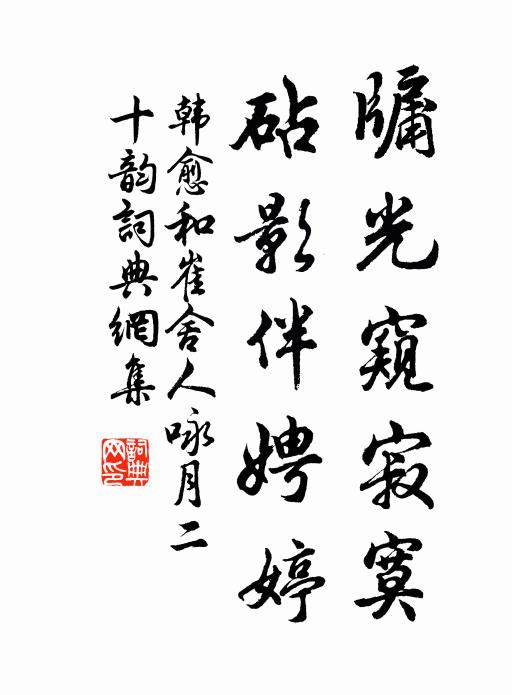 牗光窺寂寞
砧影伴娉婷
韩愈和崔舍人咏月二
十韵詞典網集
詞典网印